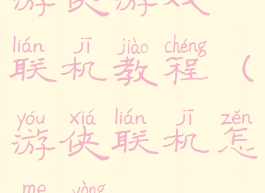 游侠游戏
lián jī jiào chéng
联机教程（
yóu xiá lián jī zěn
游侠联机怎
me yòng